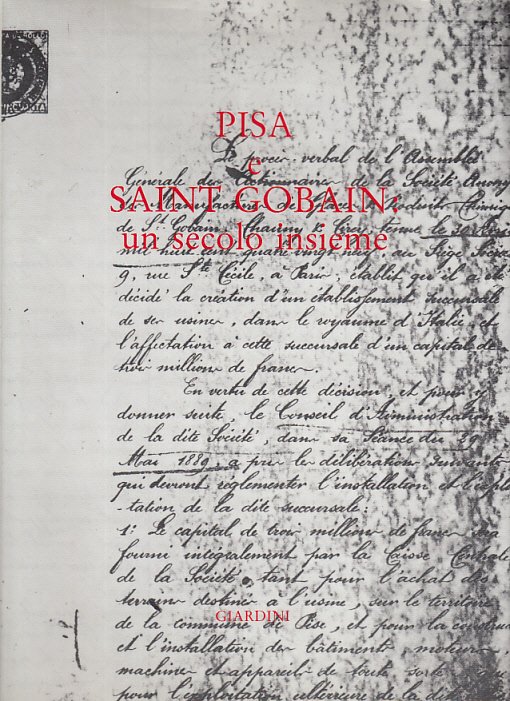 PISA
e
SAINT GOBAIN:
un secolo insieme
Le procès-verbal de l'Assemblée
Générale des Actionnaires de la Société Anony
de Manufactures de Glaces & Produits Chimiq
de St Gobain, Chauny & Cirey, tenue le
mil huit cent quatre vingt neuf, au Siège Socia
9, rue Ste Cécile, à Paris, établit qu'il a été
décidé la création d'un établissement succursale
de ses usines, dans le royaume d'Italie et
l'affectation à cette succursale d'un capital de
trois millions de francs.
En vertu de cette décision, et pour y
donner suite, le Conseil d'Administration
de la dite Société, dans sa Séance du 29
Mai 1889 a pris les délibérations suivante
qui devront règlementer l'installation et l'explo
-tation de la dite succursale:
1: Le capital de trois millions de francs sera
fourni intégralement par la Caisse Centrale
de la Société, tant pour l'achat des
terrains destinés à l'usine, sur le territoire
GIARDINI
de la commune de Pise, et pour la construc
et l'installation des bâtiments, moteurs
machines et appareils de toute sorte que
pour l'exploitation ultérieure de la dite